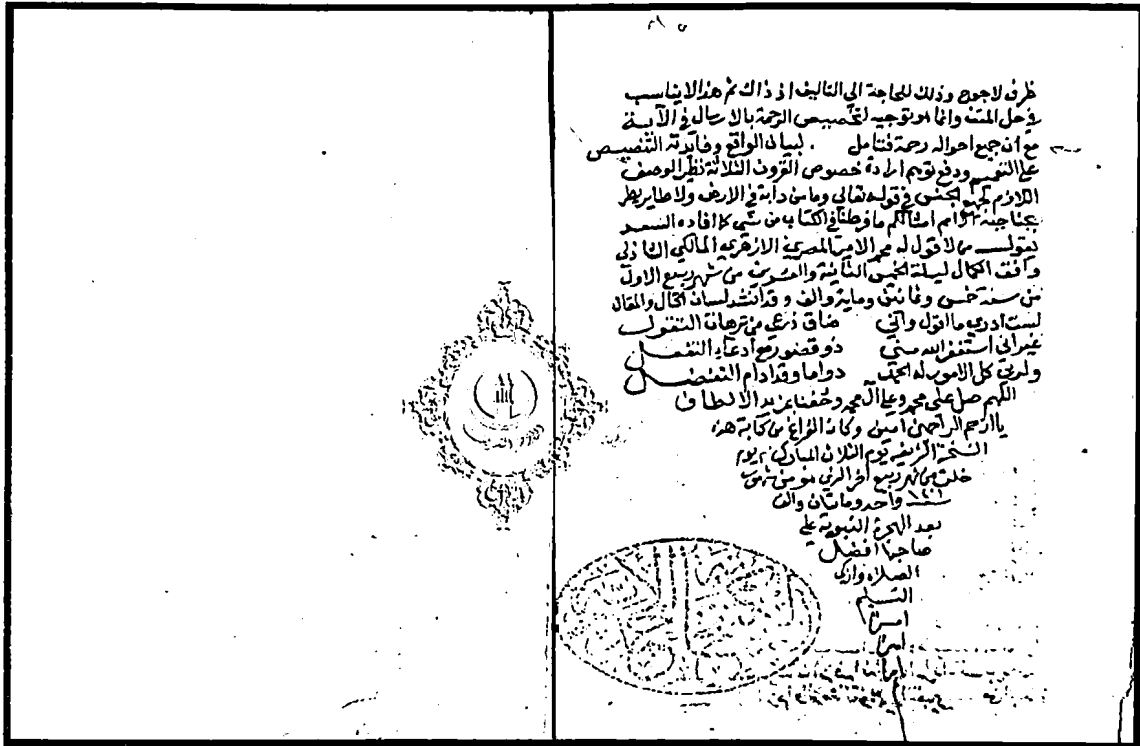 ظرف لاجوج وذلك للحاجة الى التاليف اذ ذاك ثم هذا لايناسب
في حل المتن وانما هو توجيه لتخصيص الرحمة بالارسال في الآية
مع ان جميع احواله رحمة فتامل . لبيان الواقع وفايدته التنصيص
على التعميم ودفع توهم ارادة خصوص القرون الثلاثة نظير الوصف
اللازم في قوله تعالى وما من دابة في الارض ولا طاير يطير
بجناحيه الا امم امثالكم ما فرطنا في الكتاب من شي كما افاده السعد
يقول من لا قول له محمد الامير المصري الازهري المالكي الشاذلي
وافق الكمال ليلة الخميس الثانية والعشرين من شهر ربيع الاول
من سنة خمس وثمانين وماية والف وقد انشد لسان الحال والمقال
لست ادري ما اقول واني ضاق ذرعي من ترهات التقول
غير اني استغفر الله مني ذو قصور مع ادعاء التفعل
ولربي كل الامور له الحمد دواما وقد ادام التفضل
اللهم صل على محمد وعلى آل محمد وخصنا بمزيد الالطاف
يا ارحم الراحمين امين وكان الفراغ من كتابة هذه
النسخة الشريفة يوم الثلاث المبارك يوم
خلت من شهر ربيع اخر الذي هو من شهور
١٢٠١ واحد وماتان والف
بعد الهجرة النبوية على
صاحبها افضل
الصلاة وازكى
التسليم
امين
امين
امين